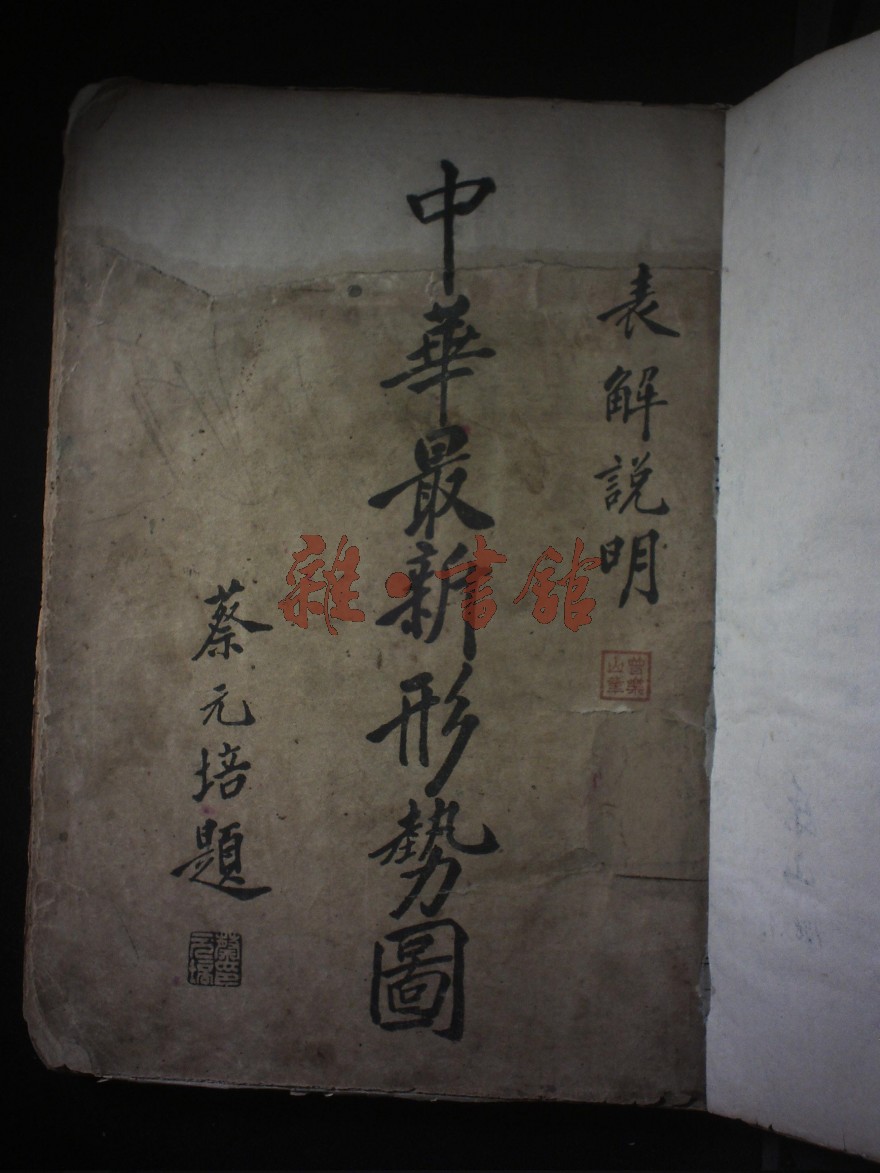 表解說明
中華最新形勢圖
蔡元培題
雜·書館